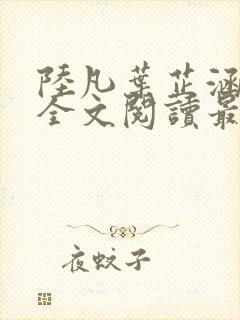 陸凡葉芷涵
全文閱讀最
夜蚊子